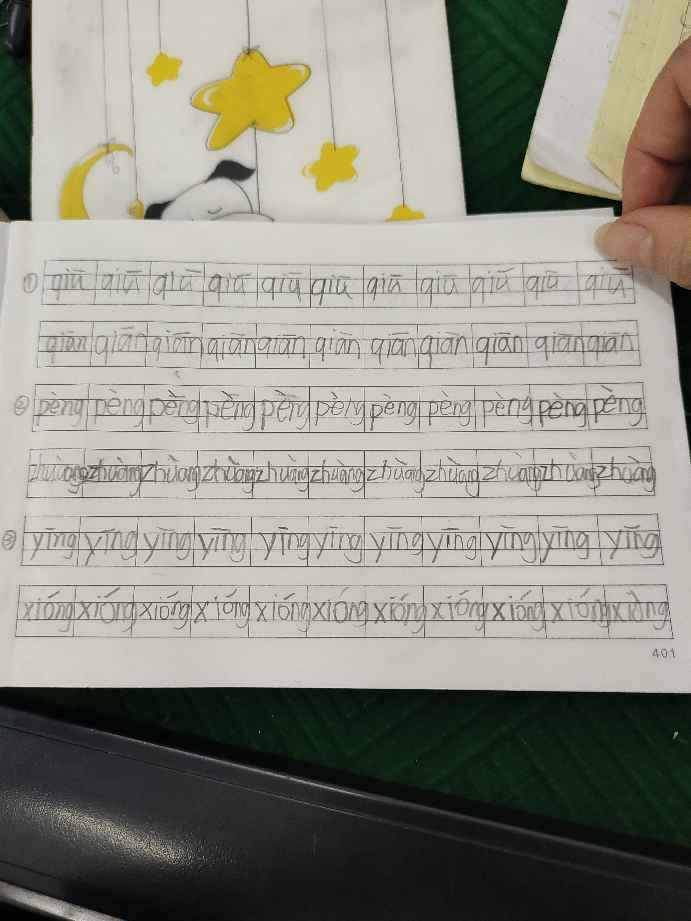 ① qiū qiū qiū qiū qiū qiū qiū qiū qiū qiū qiū
qiān qiān qiān qiān qiān qiān qiān qiān qiān qiān qiān
② pèng pèng pèng pèng pèng pèng pèng pèng pèng pèng pèng
zhuàng zhuàng zhuàng zhuàng zhuàng zhuàng zhuàng zhuàng zhuàng zhuàng zhuàng
③ yīng yīng yīng yīng yīng yīng yīng yīng yīng yīng yīng
xióng xióng xióng xióng xióng xióng xióng xióng xióng xióng xióng
401